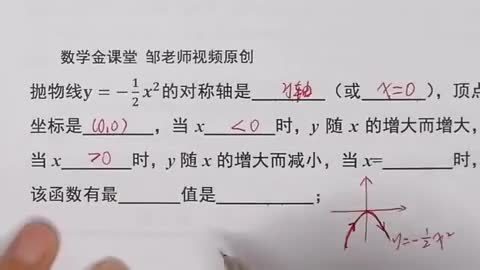 数学金课堂 邹老师视频原创
抛物线y=-\frac{1}{2}x²的对称轴是 y轴 (或 x=0 ),顶点
坐标是 (0,0) ,当 x <0 时,y 随 x 的增大而增大,
当 x >0 时,y 随 x 的增大而减小,当 x=______时,
该函数有最______值是________;
y=-\frac{1}{2}x²